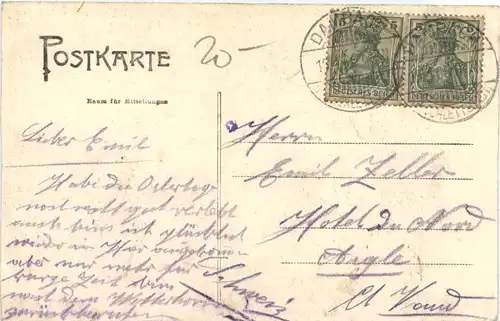 POSTKARTE
20-
Raum für Mitteilungen
Lieber Emil
Habe die Ostertage
noch recht gut verlebt
auch bin ich glücklich
wieder in
aber nur mehr für
kurze Zeit dem
nach dem
zurückberufen
Herrn
Emil Zeller
Hotel du Nord
Aigle
Ct Vaud
Schweiz
DEUTSCHES REICH
DEUTSCHES REICH